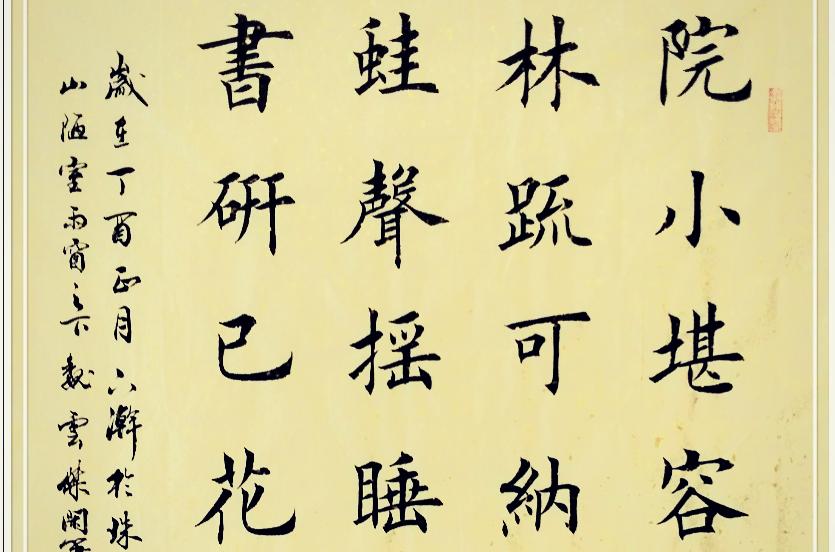 院小堪容
林疏可納
蛙聲搖睡
書研已花
歲在丁酉正月六瀚於珠
山陋室雨窗之下魏雲傑閑